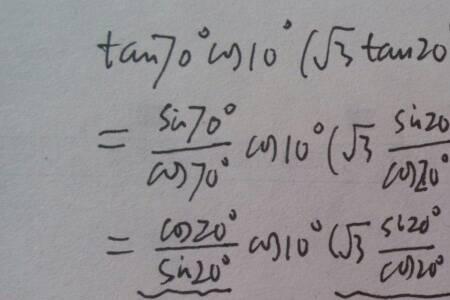 tan70°cos10°(√3 tan20°
= sin70°/cos70° cos10°(√3 sin20/cos20°
= cos20°/sin20° cos10°(√3 sin20°/cos20°